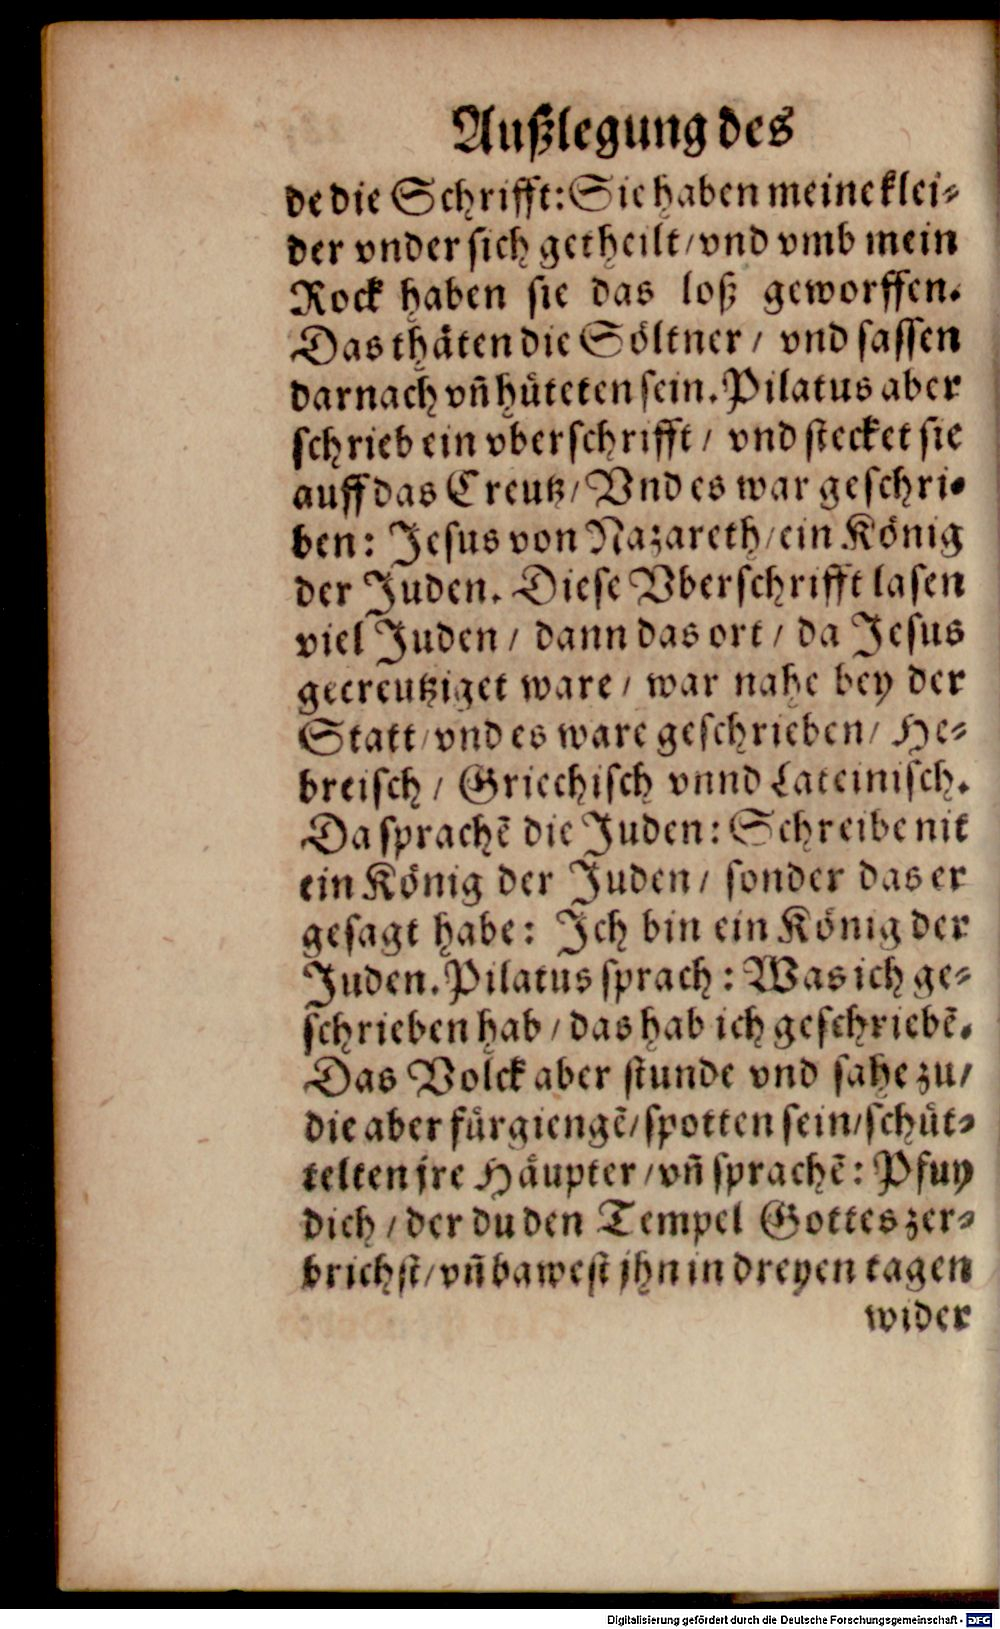 Außlegung des
de die Schrifft: Sie haben meine klei⸗
der vnder sich getheilt/ vnd vmb mein
Rock haben sie das loß geworffen.
Das thäten die Söltner/ vnd sassen
darnach vñ hüteten sein. Pilatus aber
schrieb ein vberschrifft/ vnd stecket sie
auff das Creutz/ Vnd es war geschri⸗
ben: Jesus von Nazareth/ ein König
der Juden. Diese Vberschrifft lasen
viel Juden/ dann das ort/ da Jesus
gecreutziget ware/ war nahe bey der
Statt/ vnd es ware geschrieben/ He⸗
breisch/ Griechisch vnnd Lateinisch.
Da sprachẽ die Juden: Schreibe nit
ein König der Juden/ sonder das er
gesagt habe: Ich bin ein König der
Juden. Pilatus sprach: Was ich ge⸗
schrieben hab/ das hab ich geschriebẽ.
Das Volck aber stunde vnd sahe zu/
die aber fürgiengẽ/ spotten sein/ schüt⸗
telten jre Häupter/ vñ sprachẽ: Pfuy
dich/ der du den Tempel Gottes zer⸗
brichst/ vñ bawest jhn in dreyen tagen
wider
Digitalisierung gefördert durch die Deutsche Forschungsgemeinschaft - DFG